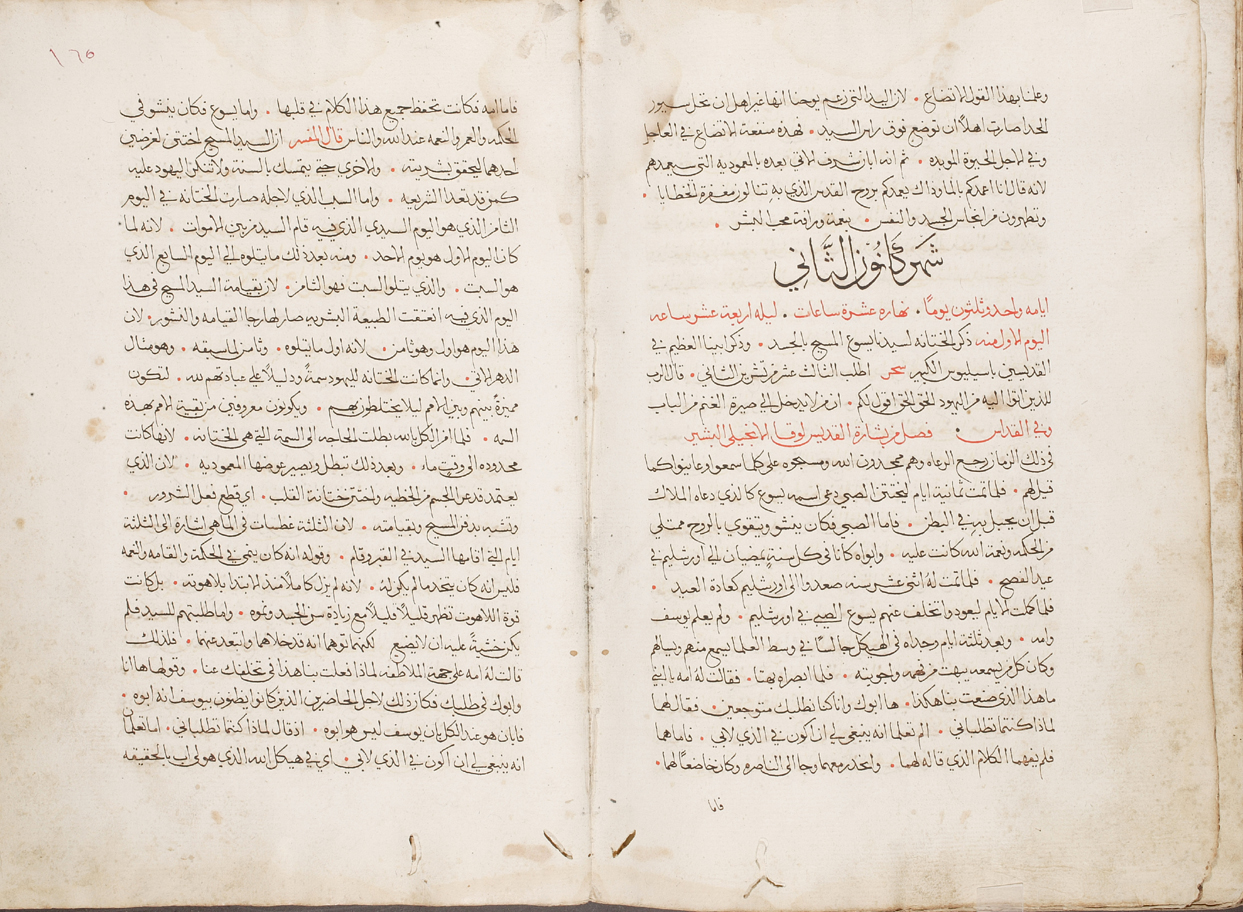 وعلمنا بهذا القول الاتضاع . لان اليد التي زعم يوحنا انها غير اهل ان تحل سيور
الحذا صارت اهلاً ان توضع فوق راس السيد . فهذه منفعة الاتضاع في العاجل
وفي الاجل الحيوة الموبده . ثم انه ابان شرف الاتي بعده بالمعموديه التي سيعمدهم
لانه قال انا اعمدكم بالما وذاك يعمدكم بروح القدس الذي به تنالون مغفرة الخطايا .
وتطهرون من انجاس الجسد والنفس . بنعمة ورافة محب البشر .
شهر كانون الثاني
ايامه واحد وثلثون يومًا . نهاره عشرة ساعات . ليله اربعة عشر ساعه
اليوم الاول منه ذكر الختانه لسيدنا يسوع المسيح بالجسد . وذكر ابينا العظيم في
القديسين باسيليوس الكبير سحر اطلب الثالث عشر من تشرين الثاني . قال الرب
للذين اتوا اليه من اليهود الحق الحق اقول لكم . ان من لا يدخل الى صيرة الغنم من الباب
وفي القداس . فصل من بشارة القديس لوقا الانجيلي البشير
في ذلك الزمان رجع الرعاه وهم يمجدون الله ويسبحوه على كلما سمعوا وعاينوا كما
قيل لهم . فلما تمت ثمانية ايام ليختتن الصبي دعي اسمه يسوع كالذي دعاه الملاك
قبل ان يحبل به في البطن . فاما الصبي فكان ينشو ويتقوي بالروح ممتلي
من الحكمه ونعمة الله كانت عليه . وابواه كانا في كل سنةٍ يمضيان الى اورشليم في
عيد الفصح . فلما تمت لهُ اثني عشر سنه صعدوا الى اورشليم كعادة العيد .
فلما كملت الايام ليعودوا تخلف عنهم يسوع الصبي في اورشليم . ولم يعلم يوسف
وامه . وبعد ثلثة ايام وجداه في الهيكل جالسًا في وسط العلما يسمع منهم ويسالهم
وكان كل من يسمعه يبهت من فهمه واجوبته . فلما ابصراه بهتا . فقالت لهُ امه يا ابني
ما هذا الذي صنعت بنا هكذا . ها ابوك وانا كنا نطلبك متوجعين . فقال لهما
لماذا كنتما تطلباني . الم تعلما انه ينبغي لي ان اكون في الذي لابي . فاما هما
فلم يفهما الكلام الذي قاله لهما . وانحدر معهما وجا الى الناصره وكان خاضعًا لهما .
فاما
١٦٥
فاما امه فكانت تحفظ جميع هذا الكلام في قلبها . واما يسوع فكان ينشو في
الحكمه والعمر والنعمه عند الله والناس قال المفسر ان السيد المسيح اختتن لغرضين
احدهما ليحقق بشريته . والاخرى حتى يتمسك بالسنة ولا تشكى اليهود عليه
كمن قد تعدا الشريعه . واما السبب الذي لاجله صارت الختانه في اليوم
الثامن الذي هو اليوم السيدي الذي فيه قام السيد من بين الاموات . لانه لما
كان اليوم الاول هو يوم الاحد . ومنه بعد ذلك ما يتلوه الى اليوم السابع الذي
هو السبت . والذي يتلو السبت فهو الثامن . لان بقيامة السيد المسيح في هذا
اليوم الذي فيه اعتقت الطبيعة البشريه صار لها رجا القيامه والنشور . لان
هذا اليوم هو اول وهو ثامن . لانه اول ما يتلوه . وثامن لما سبقه . وهو مثال
الدهر الاتي . وانما كانت الختانه لليهود سمةً ودليلاً على عبادتهم لله . لتكون
مميزةً بينهم وبين الامم ليلا يختلطون بهم . ويكونون معروفين من بقية الامم بهذه
السمه . فلما امن الكل بالله بطلت الحاجه الى السمة التي هي الختانه . لانها كانت
محدوده الى وقتٍ ما . وبعد ذلك تبطل ويصير عوضها المعموديه . لان الذي
يعتمد قد عرى الجسم من الخطيه واختتن ختانة القلب . اي قطع فعل الشرور .
وتشبه بدفن المسيح وبقيامته . لان الثلثة غطسات في الما هي اشارة الى الثلثة
ايام التي اقامها السيد في القبر وقام . وقوله انه كان ينمي في الحكمة والقامه والنعمه
فليس انه كان يتخذ ما لم يكن له . لانه لم يزل كاملاً منذ الابتدا بلاهوته . بل كانت
قوة اللاهوت تظهر قليلاً قليلاً مع زيادة سن الجسد ونموه . واما طلبتهم للسيد فلم
يكن خشيةً عليه ان لا يضيع لكنهما توهما انه قد خلاهما وابتعد عنهما . فلذلك
قالت لهُ امه على جهة الملاطفه لماذا فعلت بنا هذا في تخلفك عنا . وقولها ها انا
وابوك في طلبك فكان ذلك لاجل الحاضرين الذين كانوا يظنون بيوسف انه ابوه .
فابان هو عند الكل بان يوسف ليس هو ابوه . اذ قال لماذا كنتما تطلباني . اما تعلمان
انه ينبغي لي ان اكون في الذي لابي . اي في هيكل الله الذي هو لي اب بالحقيقه